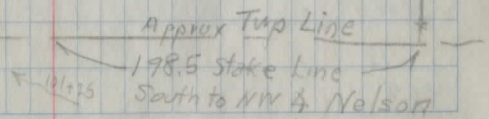 Approx Twp Line
198.5 Stake Line
South to NW 4 Nelson